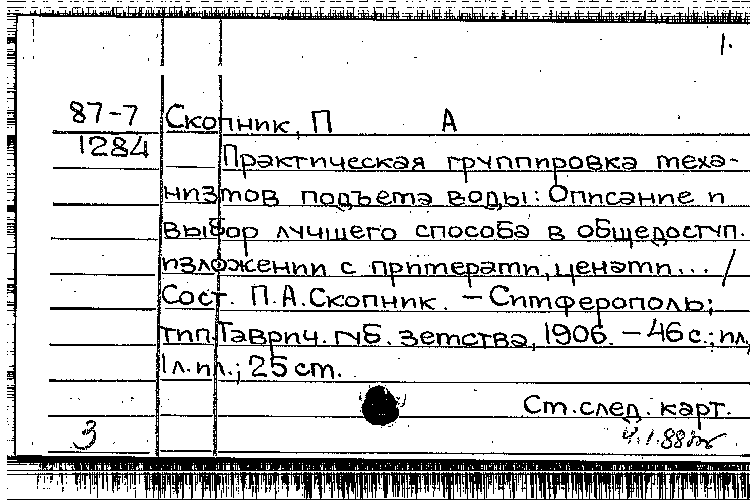 1.
87-7 Скопник, П А
1284 Практическая группировка меха-
низмов подъема воды: Описание и
выбор лучшего способа в общедоступ.
изложении с примерами, ценами... /
Сост. П.А.Скопник. – Симферополь;
тип.Таврич. губ. земства, 1906. – 46 с.; ил,
1 л. ил.; 25 см.
Ст. след. карт.
3